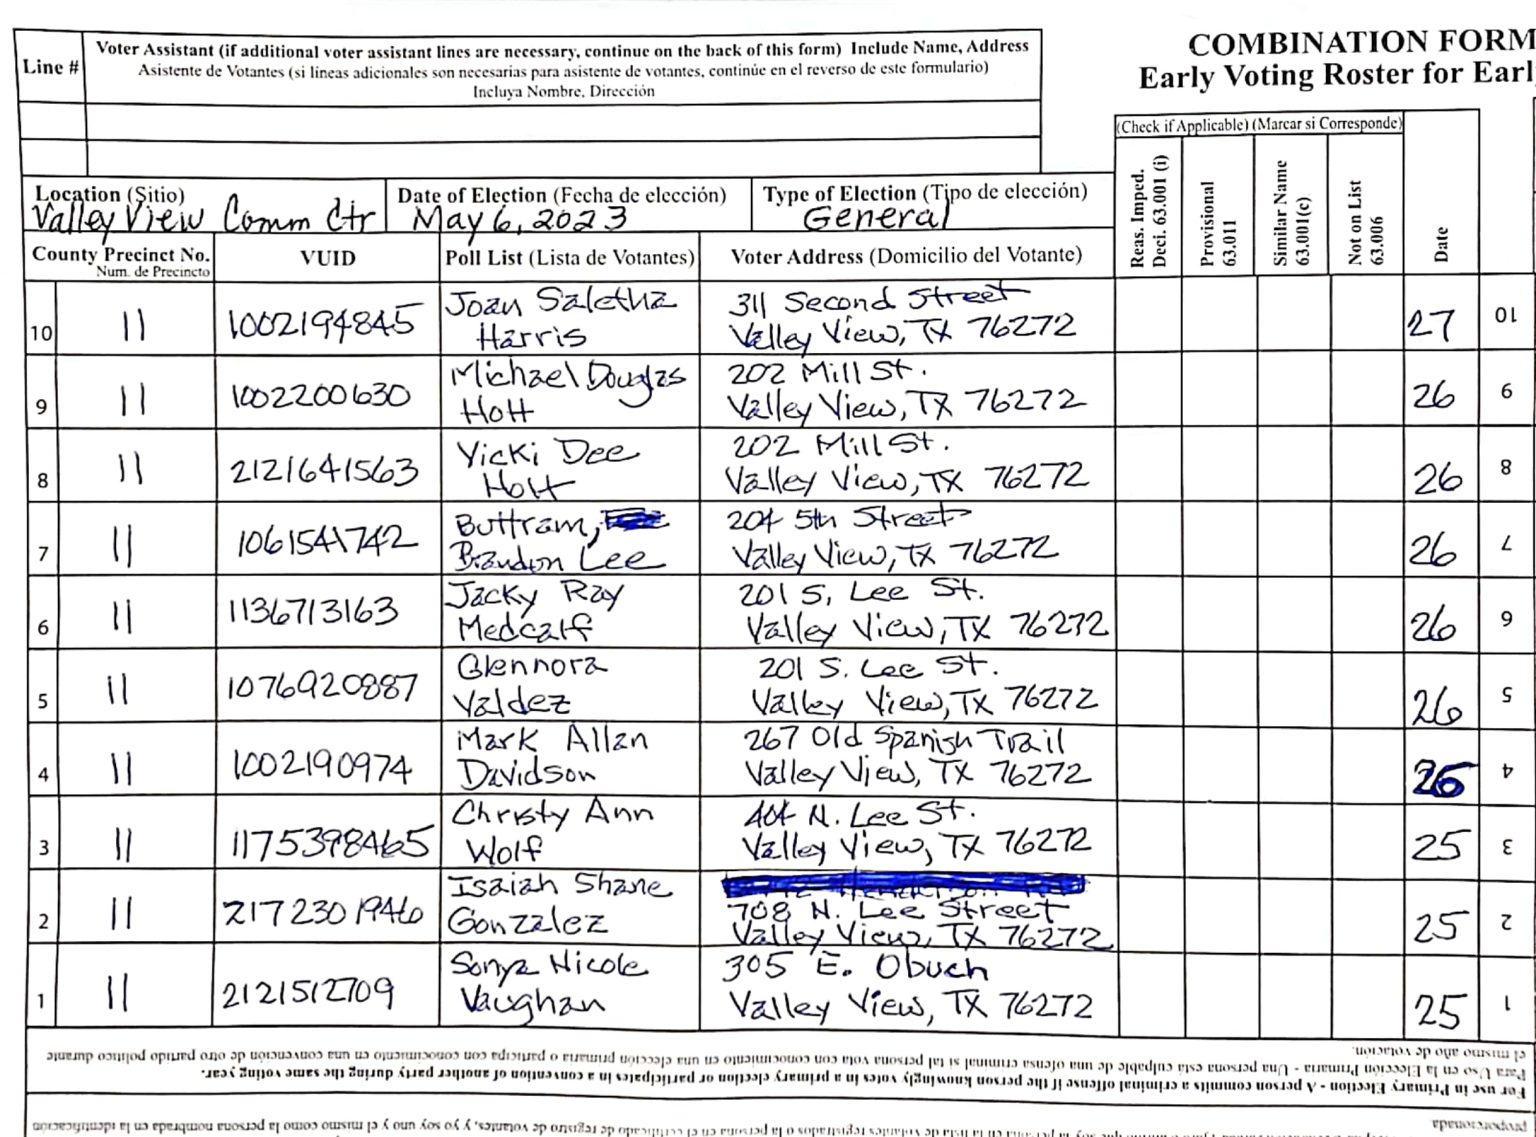 COMBINATION FORM
Early Voting Roster for Earl
Line #
Voter Assistant (if additional voter assistant lines are necessary, continue on the back of this form) Include Name, Address
Asistente de Votantes (si lineas adicionales son necesarias para asistente de votantes, continúe en el reverso de este formulario)
Incluya Nombre, Dirección
(Check if Applicable) (Marcar si Corresponde)
Reas. Imped.
Decl. 63.001 (i)
Provisional
63.011
Similar Name
63.001(c)
Not on List
63.006
Date
Location (Sitio)
Valley View Comm Ctr
Date of Election (Fecha de elección)
May 6, 2023
Type of Election (Tipo de elección)
General
County Precinct No.
Num. de Precincto
VUID
Poll List (Lista de Votantes)
Voter Address (Domicilio del Votante)
10 11 1002194845 Joan Saletha Harris 311 Second Street Valley View, TX 76272 27 10
9 11 1002200630 Michael Douglas Hott 202 Mill St. Valley View, TX 76272 26 9
8 11 2121641563 Vicki Dee Holt 202 Mill St. Valley View, TX 76272 26 8
7 11 1061541742 Buttram, Brandon Lee 204 5th Street Valley View, TX 76272 26 7
6 11 1136713163 Jacky Ray Medcalf 201 S. Lee St. Valley View, TX 76272 26 6
5 11 1076920887 Glennora Valdez 201 S. Lee St. Valley View, TX 76272 26 5
4 11 1002190974 Mark Allan Davidson 267 Old Spanish Trail Valley View, TX 76272 26 4
3 11 1175398465 Christy Ann Wolf 404 N. Lee St. Valley View, TX 76272 25 3
2 11 2172301946 Isaiah Shane Gonzalez 708 N. Lee Street Valley View, TX 76272 25 2
1 11 2121512709 Sonya Nicole Vaughan 305 E. Obuch Valley View, TX 76272 25 1
For use in Primary Election - A person commits a criminal offense if the person knowingly votes in a primary election or participates in a convention of another party during the same voting year.
Para Uso en la Elección Primaria - Una persona está culpable de una ofensa criminal si tal persona vota con conocimiento en una elección primaria o participa con conocimiento en una convención de otro partido politico durante
el mismo año de votación.